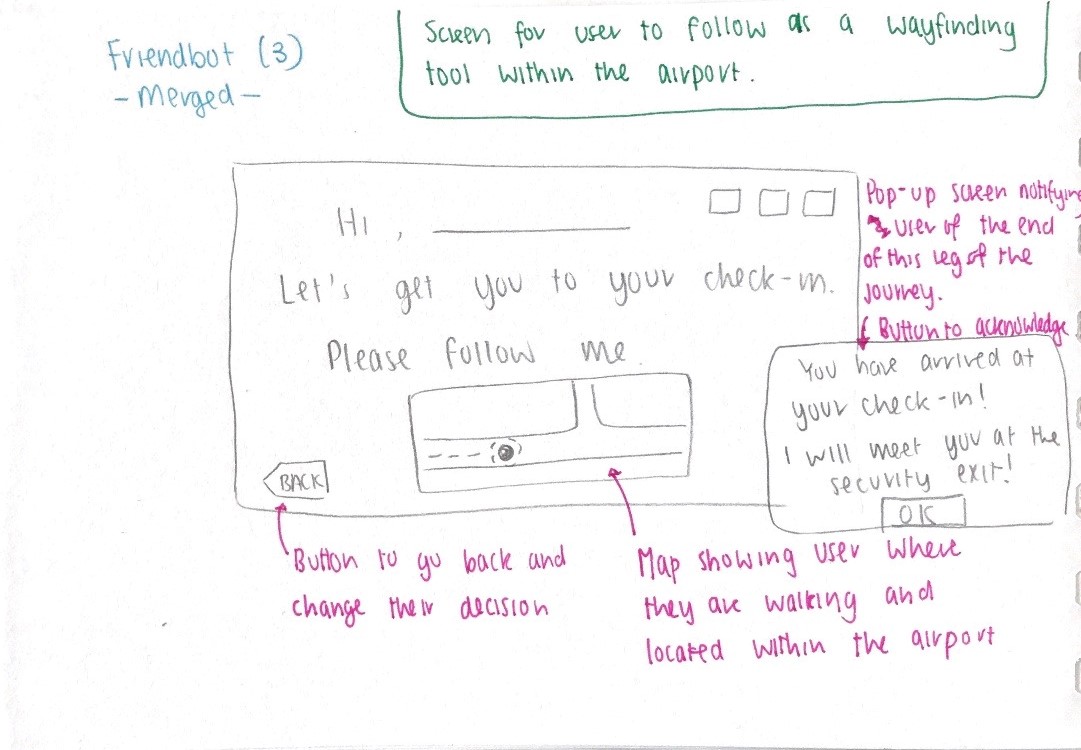 Friendbot (3)
- Merged -
Screen for user to follow as a wayfinding
tool within the airport.
Hi, 
Let's get you to your check-in.
Please follow me.
BACK
Pop-up screen notifying
user of the end
of this leg of the
journey.
( Button to acknowledge
You have arrived at
your check-in!
I will meet you at the
security exit!
OK
Button to go back and
change their decision
Map showing user where
they are walking and
located within the airport